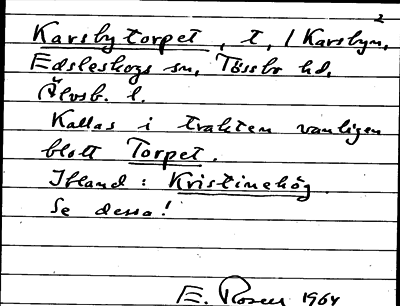 2
Karsbytorpet, t, / Karsbyn,
Edsleskogs sn, Tössbo hd,
Älvsb. l.
Kallas i trakten vanligen
blott Torpet.
Ibland: Kristinehög.
Se dessa!
E. Rosell 1964